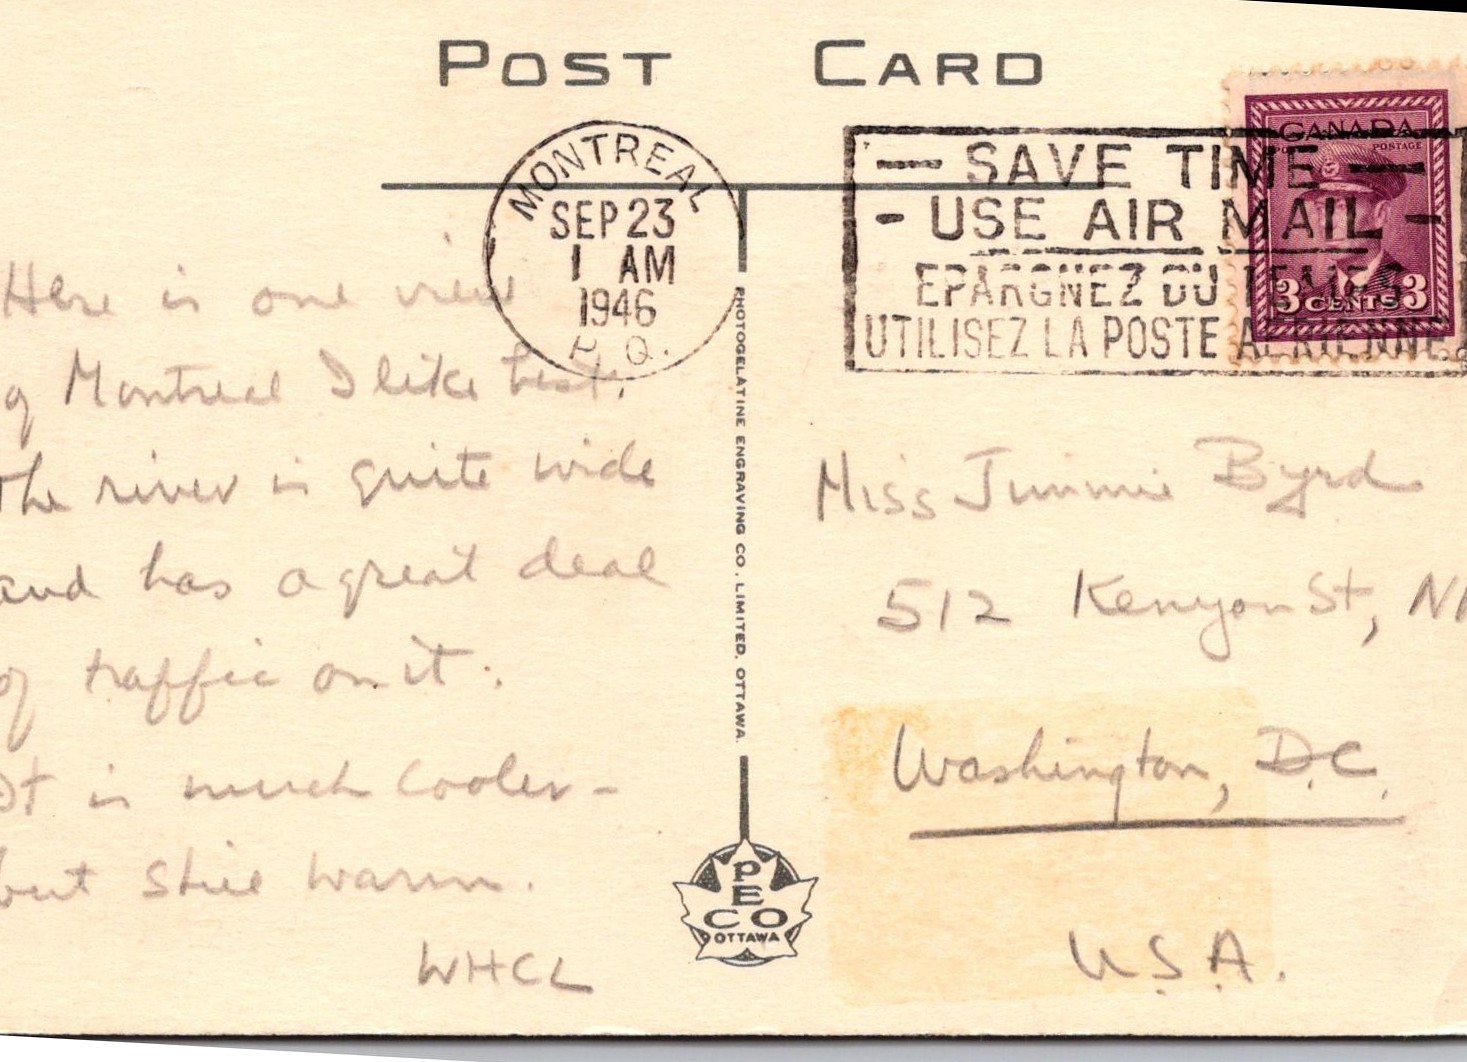 POST CARD
MONTREAL
SEP 23
1 AM
1946
P. Q.
SAVE TIME
USE AIR MAIL
EPARGNEZ DU TEMPS
UTILISEZ LA POSTE AERIENNE
CANADA
POSTAGE
3 CENTS 3
Here is one view
of Montreal I like best.
The river is quite wide
and has a great deal
of traffic on it.
It is much cooler -
but still warm.
WHCL
PHOTOGELATINE ENGRAVING CO., LIMITED, OTTAWA.
PECO
OTTAWA
Miss Jimmie Byrd
512 Kenyon St,
Washington, D.C.
U.S.A.